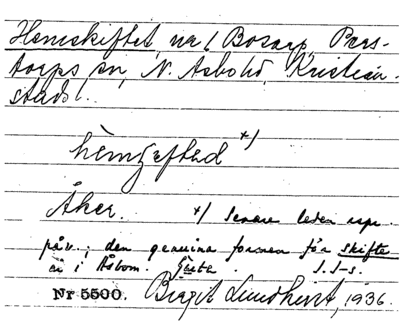 Hemskiftet, nr 1 Bosarp, Pers-
torps sn, N. Åsbo hd, Kristian-
stads l.
hèmʒefted x)
Åker. x) Senare leden rspr.
påv.; den genuina formen för skifte
är i Åsbom. S.I-s.
Nr 5500. Birgit Lundqvist, 1936.